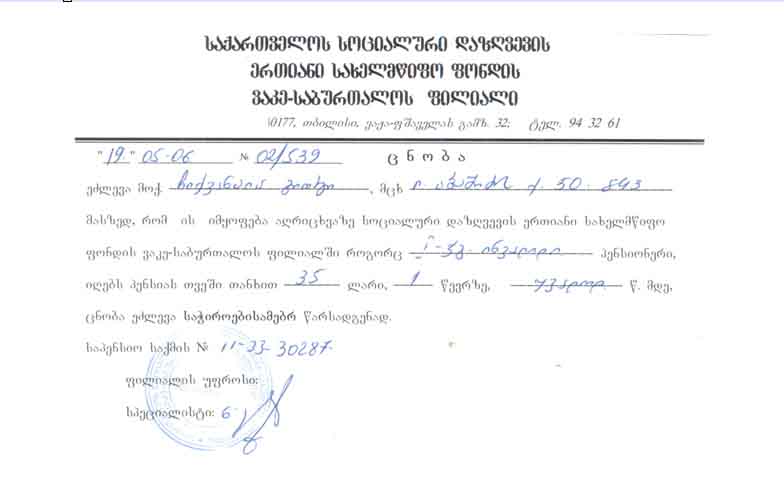 საქართველოს სოციალური დაზღვევის
ერთიანი სახელმწიფო ფონდის
ვაკე-საბურთალოს ფილიალი
0177, თბილისი, ვაჟა-ფშაველას გამზ. 32; ტელ. 94 32 61
"19" 05-06 № 02/539 ცნობა
ეძლევა მოქ. ჩიქვანაია, მცხ. ქ. 50.
მასზედ, რომ ის იმყოფება აღრიცხვაზე სოციალური დაზღვევის ერთიანი სახელმწიფო
ფონდის ვაკე-საბურთალოს ფილიალში როგორც I-ჯგ. ინვალიდი პენსიონერი,
იღებს პენსიას თვეში თანხით 35 ლარი, 1 წევრზე, უვადოდ წ. მდე,
ცნობა ეძლევა საჭიროებისამებრ წარსადგენად.
საპენსიო საქმის № 11-33-30287
ფილიალის უფროსი:
სპეციალისტი: